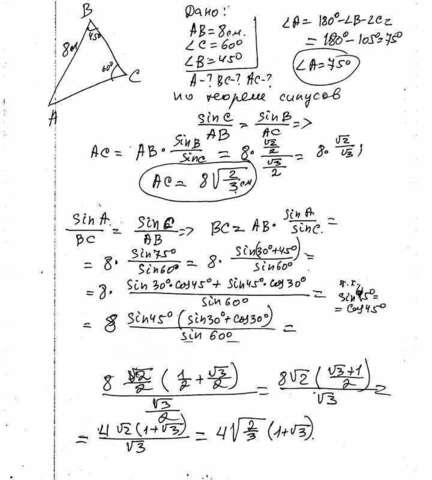 B
45°
8см
60°
C
A
Дано:
AB = 8см.
∠C = 60°
∠B = 45°
A-? BC-? AC-?
∠A = 180° - ∠B - ∠C =
= 180° - 105° = 75°
∠A = 75°
по теореме синусов
sin C / AB = sin B / AC =>
AC = AB · sin B / sin C = 8 · (√2/2) / (√3/2) = 8 · √2/√3;
AC = 8√(2/3) см
sin A / BC = sin C / AB => BC = AB · sin A / sin C =
= 8 · sin 75° / sin 60° = 8 · sin(30° + 45°) / sin 60° =
= 8 · (sin 30° · cos 45° + sin 45° · cos 30°) / sin 60° = т.к. sin 45° = = cos 45°
= 8 sin 45° (sin 30° + cos 30°) / sin 60° =
8 √2/2 (1/2 + √3/2) / (√3/2) = 8√2 ((√3+1)/2) / √3 =
= 4√2 (1+√3) / √3 = 4√(2/3) (1+√3).